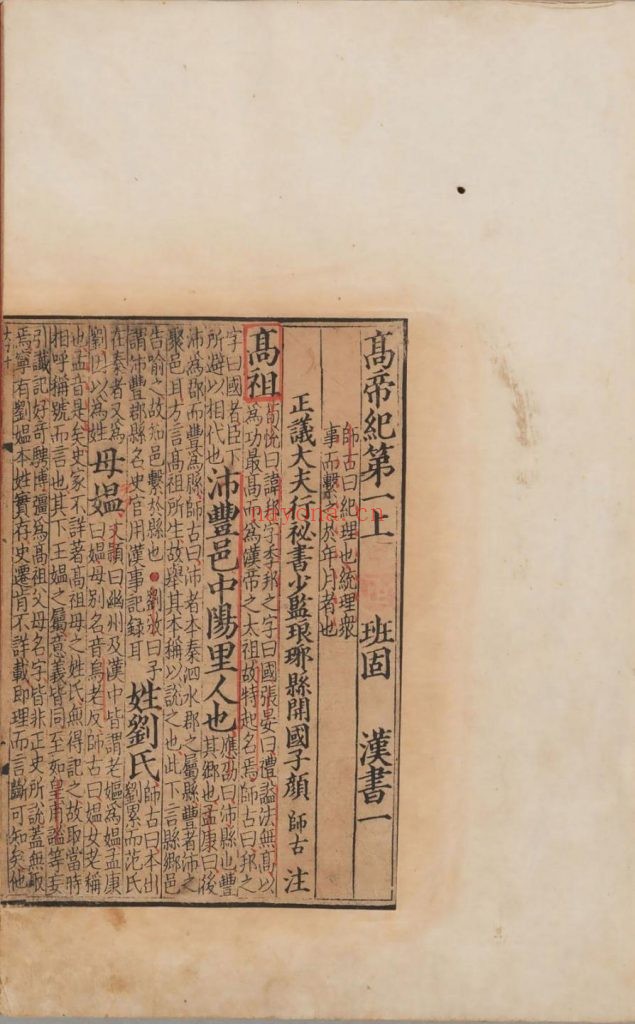 高帝紀第一上 班固 漢書一
師古曰紀理也統理衆
事而繫之於年月者也
正議大夫行祕書少監琅邪縣開國子顏 師古 注
高祖
荀悅曰諱邦字季邦之字曰國張晏曰禮謚法無高以
為功最高而為漢帝之太祖故特起名焉師古曰邦之
字曰國者臣下
所避以相代也
沛豐邑中陽里人也
應劭曰沛縣也豐
其鄉也孟康曰後
沛為郡而豐為縣師古曰沛者本秦泗水郡之屬縣豐者沛之
聚邑耳方言高祖所生故舉其本稱以說之也此下言縣鄉邑
告喻之故知邑繫於縣也劉攽曰予
謂沛豐郡縣名史官用漢事記録耳
姓劉氏
師古曰本出
劉累而范氏
在秦者又為
劉因以為姓
母媼
文穎曰幽州及漢中皆謂老嫗為媼孟康
曰媼母別名音烏老反師古曰媼女老稱
也孟音是矣史家不詳著高祖母之姓氏無得記之故取當時
相呼稱號而言也其下王媼之屬意義皆同至如皇甫謐等妄
引讖記好奇騁博彊為高祖父母名字皆非正史所說蓋無取
焉寧有劉媼本姓實存史遷肯不詳載即理而言斷可知矣他
navona.cn